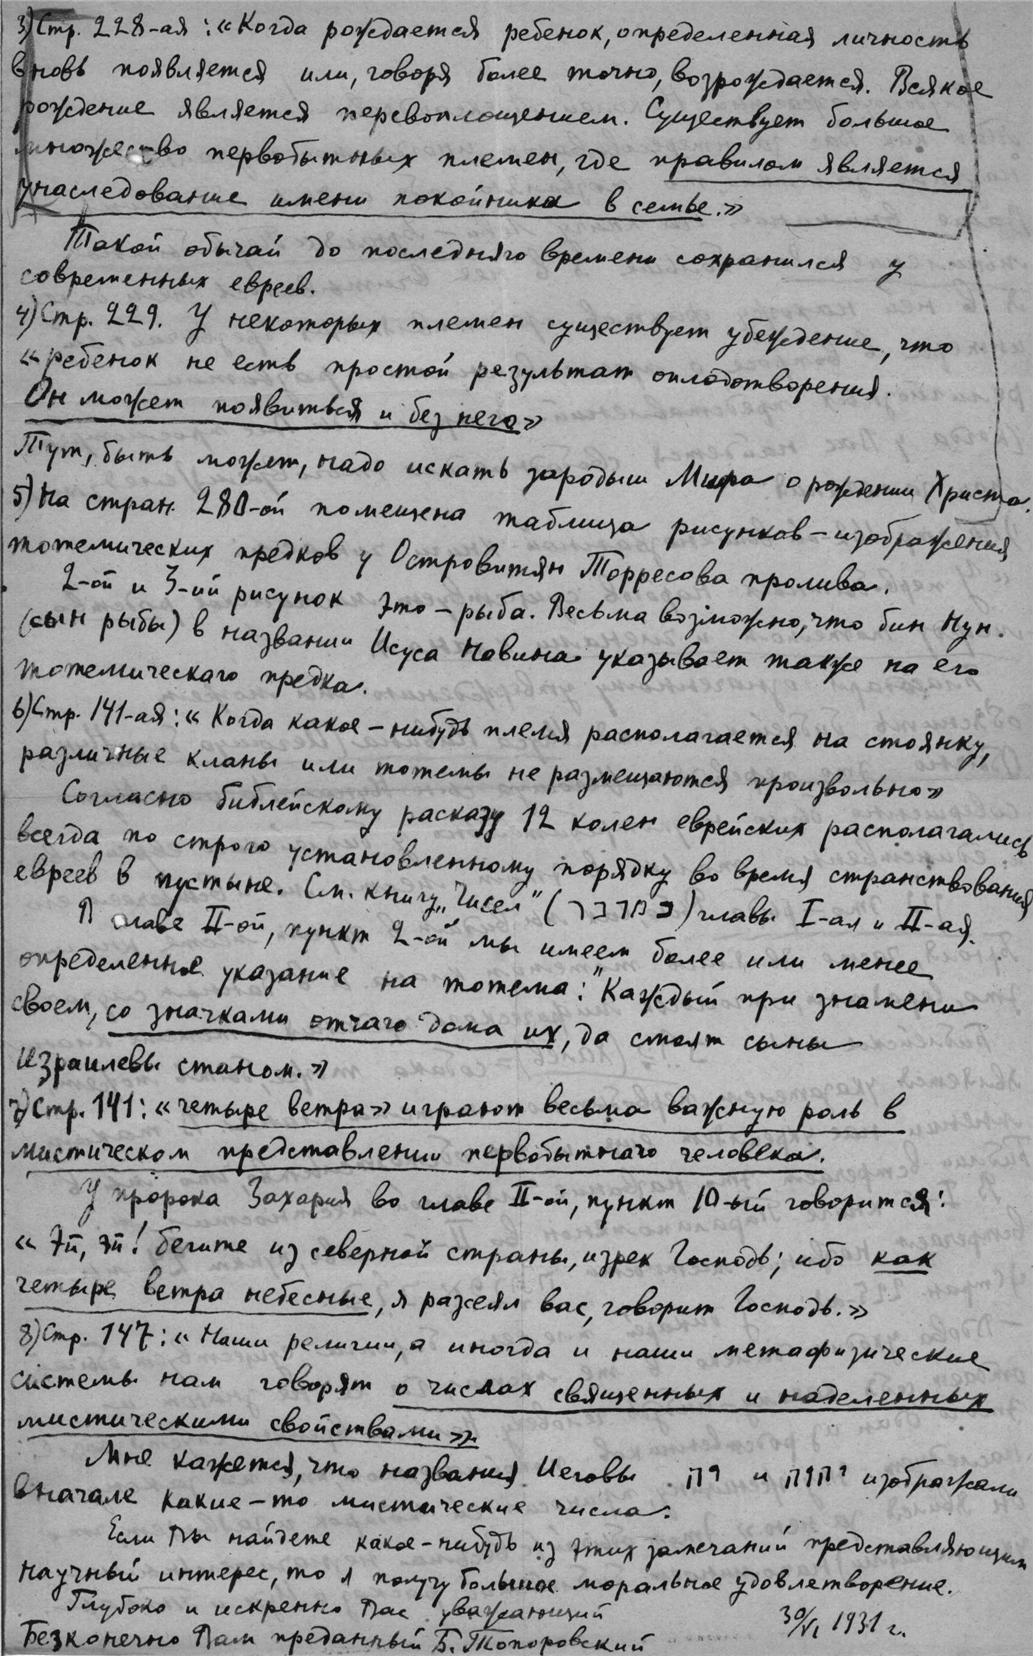 3) Стр. 228-ая: «Когда рождается ребенок, определенная личность
вновь появляется или, говоря более точно, возрождается. Всякое
рождение является перевоплощением. Существует большое
множество первобытных племен, где правилом является
унаследование имени покойника в семье.»
Такой обычай до последняго времени сохранился у
современных евреев.
4) Стр. 229. У некоторых племен существует убеждение, что
«ребенок не есть простой результат оплодотворения.
Он может появиться и без него»
Тут, быть может, надо искать зародыш Мифа о рождении Христа.
5) На стран. 280-ой помещена таблица рисунков – изображения
тотемических предков у Островитян Торресова пролива.
2-ой и 3-ий рисунок это – рыба. Весьма возможно, что бин Нун.
(сын рыбы) в названии Исуса Навина указывает также на его
тотемическаго предка.
6) Стр. 141-ая: «Когда какое-нибудь племя располагается на стоянку,
различные кланы или тотемы не размещаются произвольно»
Согласно библейскому расказу 12 колен еврейских располагались
всегда по строго установленному порядку во время странствования
евреев в пустыне. См. книгу „Чисел" (במדבר) главы I-ая и II-ая.
В главе II-ой, пункт 2-ой мы имеем более или менее
определенное указание на тотема: "Каждый при знамени
своем, со значками отчаго дома их, да стоят сыны
Израилевы станом.»
7) Стр. 141: «четыре ветра» играют весьма важную роль в
мистическом представлении первобытнаго человека.
У пророка Захария во главе II-ой, пункт 10-ый говорится:
«Эй, эй! бегите из северной страны, изрек Господь; ибо как
четыре ветра небесные, я разсеял вас, говорит Господь.»
8) Стр. 147: «Наши религии, а иногда и наши метафизические
системы нам говорят о числах священных и наделенных
мистическими свойствами».
Мне кажется, что названия Иеговы יה и יהוה изображали
вначале какие-то мистические числа.
Если Вы найдете какое-нибудь из этих замечаний представляющим
научный интерес, то я получу большое моральное удовлетворение.
Глубоко и искренно Вас уважающий
Безконечно Вам преданный Б. Топоровский
30/VI 1931 г.